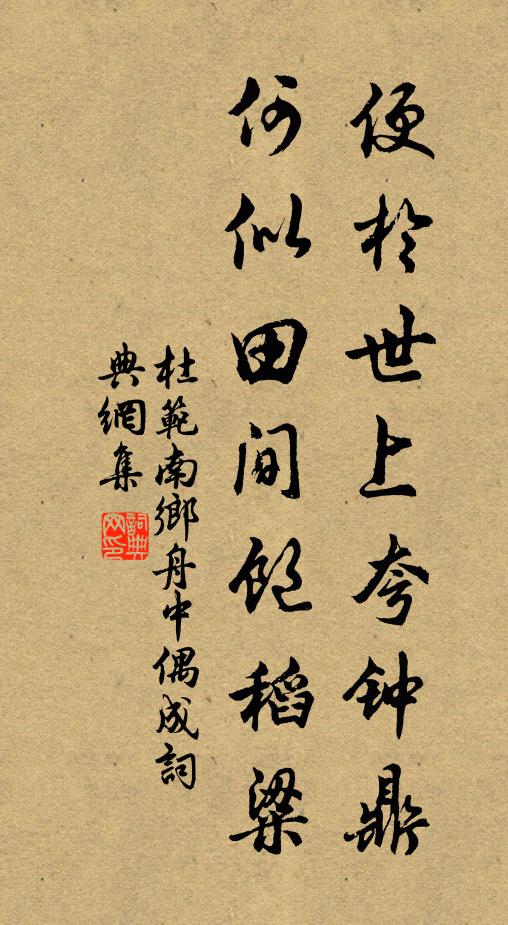 便於世上夸钟鼎
何似田间饱稻粱
杜範南鄉舟中偶成詞
典網集
詞典
网印